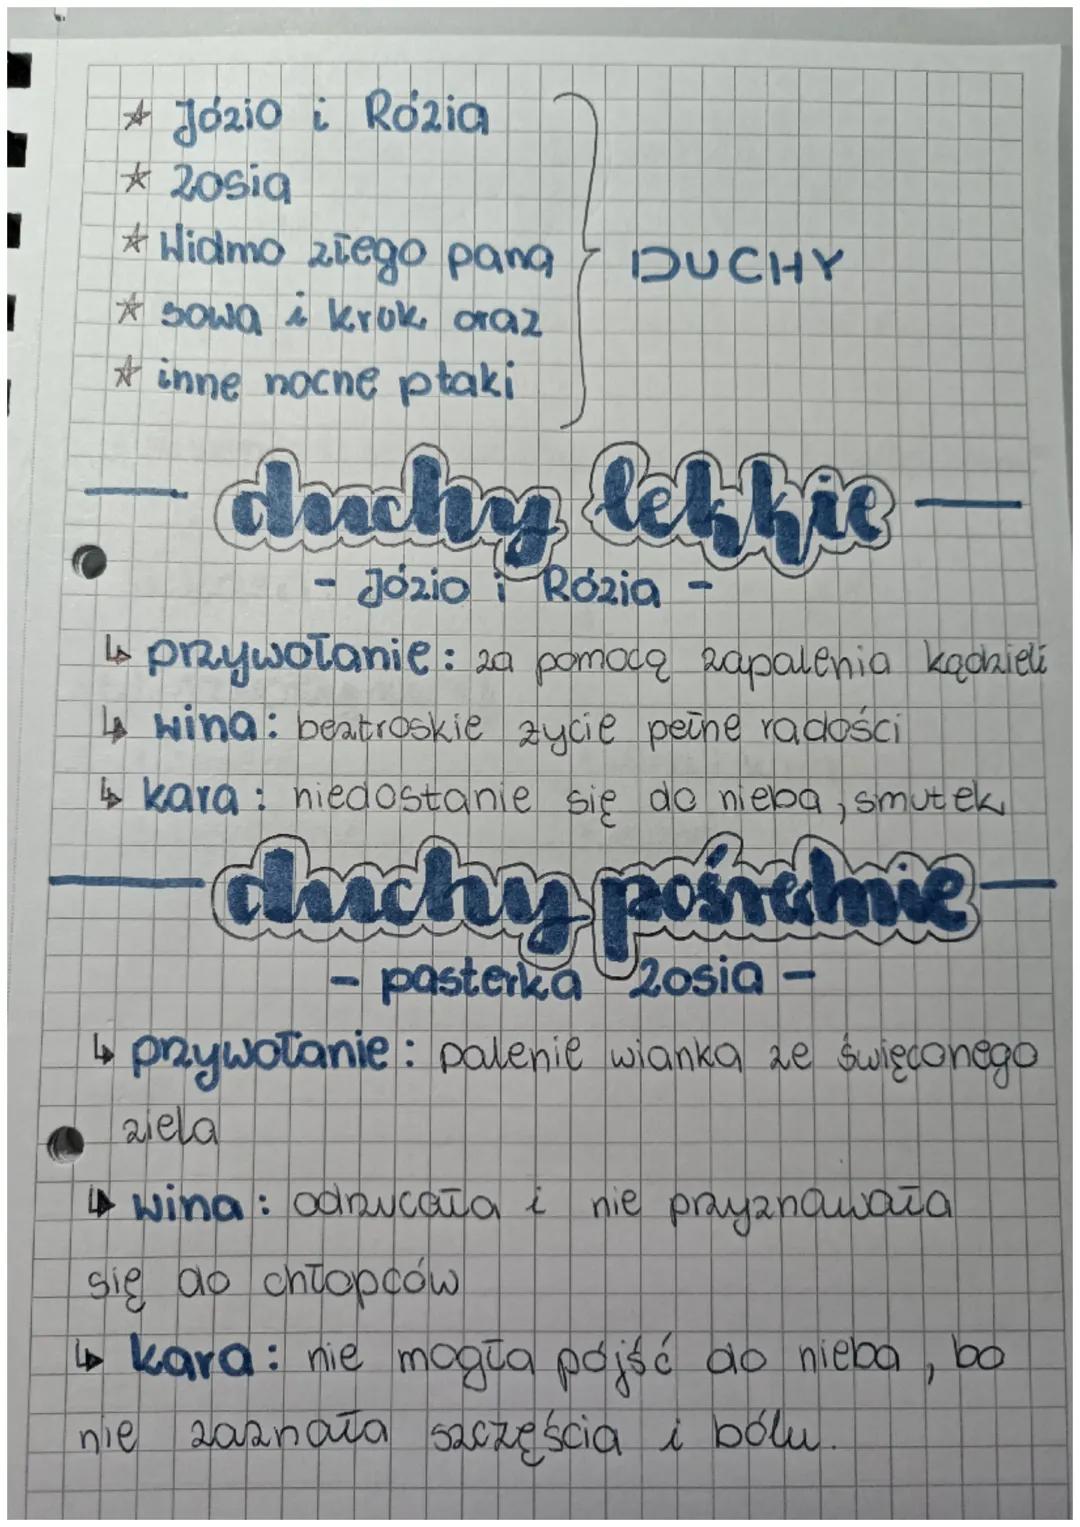 ☆ Józio i Rózia
☆ Zosia
☆ Widmo złego pana
DUCHY
☆ sowa i kruk oraz
☆ inne nocne ptaki
duchy lekkie
- Józio i Rózia -
↳ przywołanie: za pomocą zapalenia kądzieli
↳ wina: beztroskie życie pełne radości
↳ kara: niedostanie się do nieba, smutek
duchy pośrednie
- pasterka Zosia -
↳ przywołanie: palenie wianka ze święconego
ziela
↳ wina: odrzucała i nie przyznawała
się do chłopców
↳ kara: nie mogła pójść do nieba, bo
nie zaznała szczęścia i bólu.